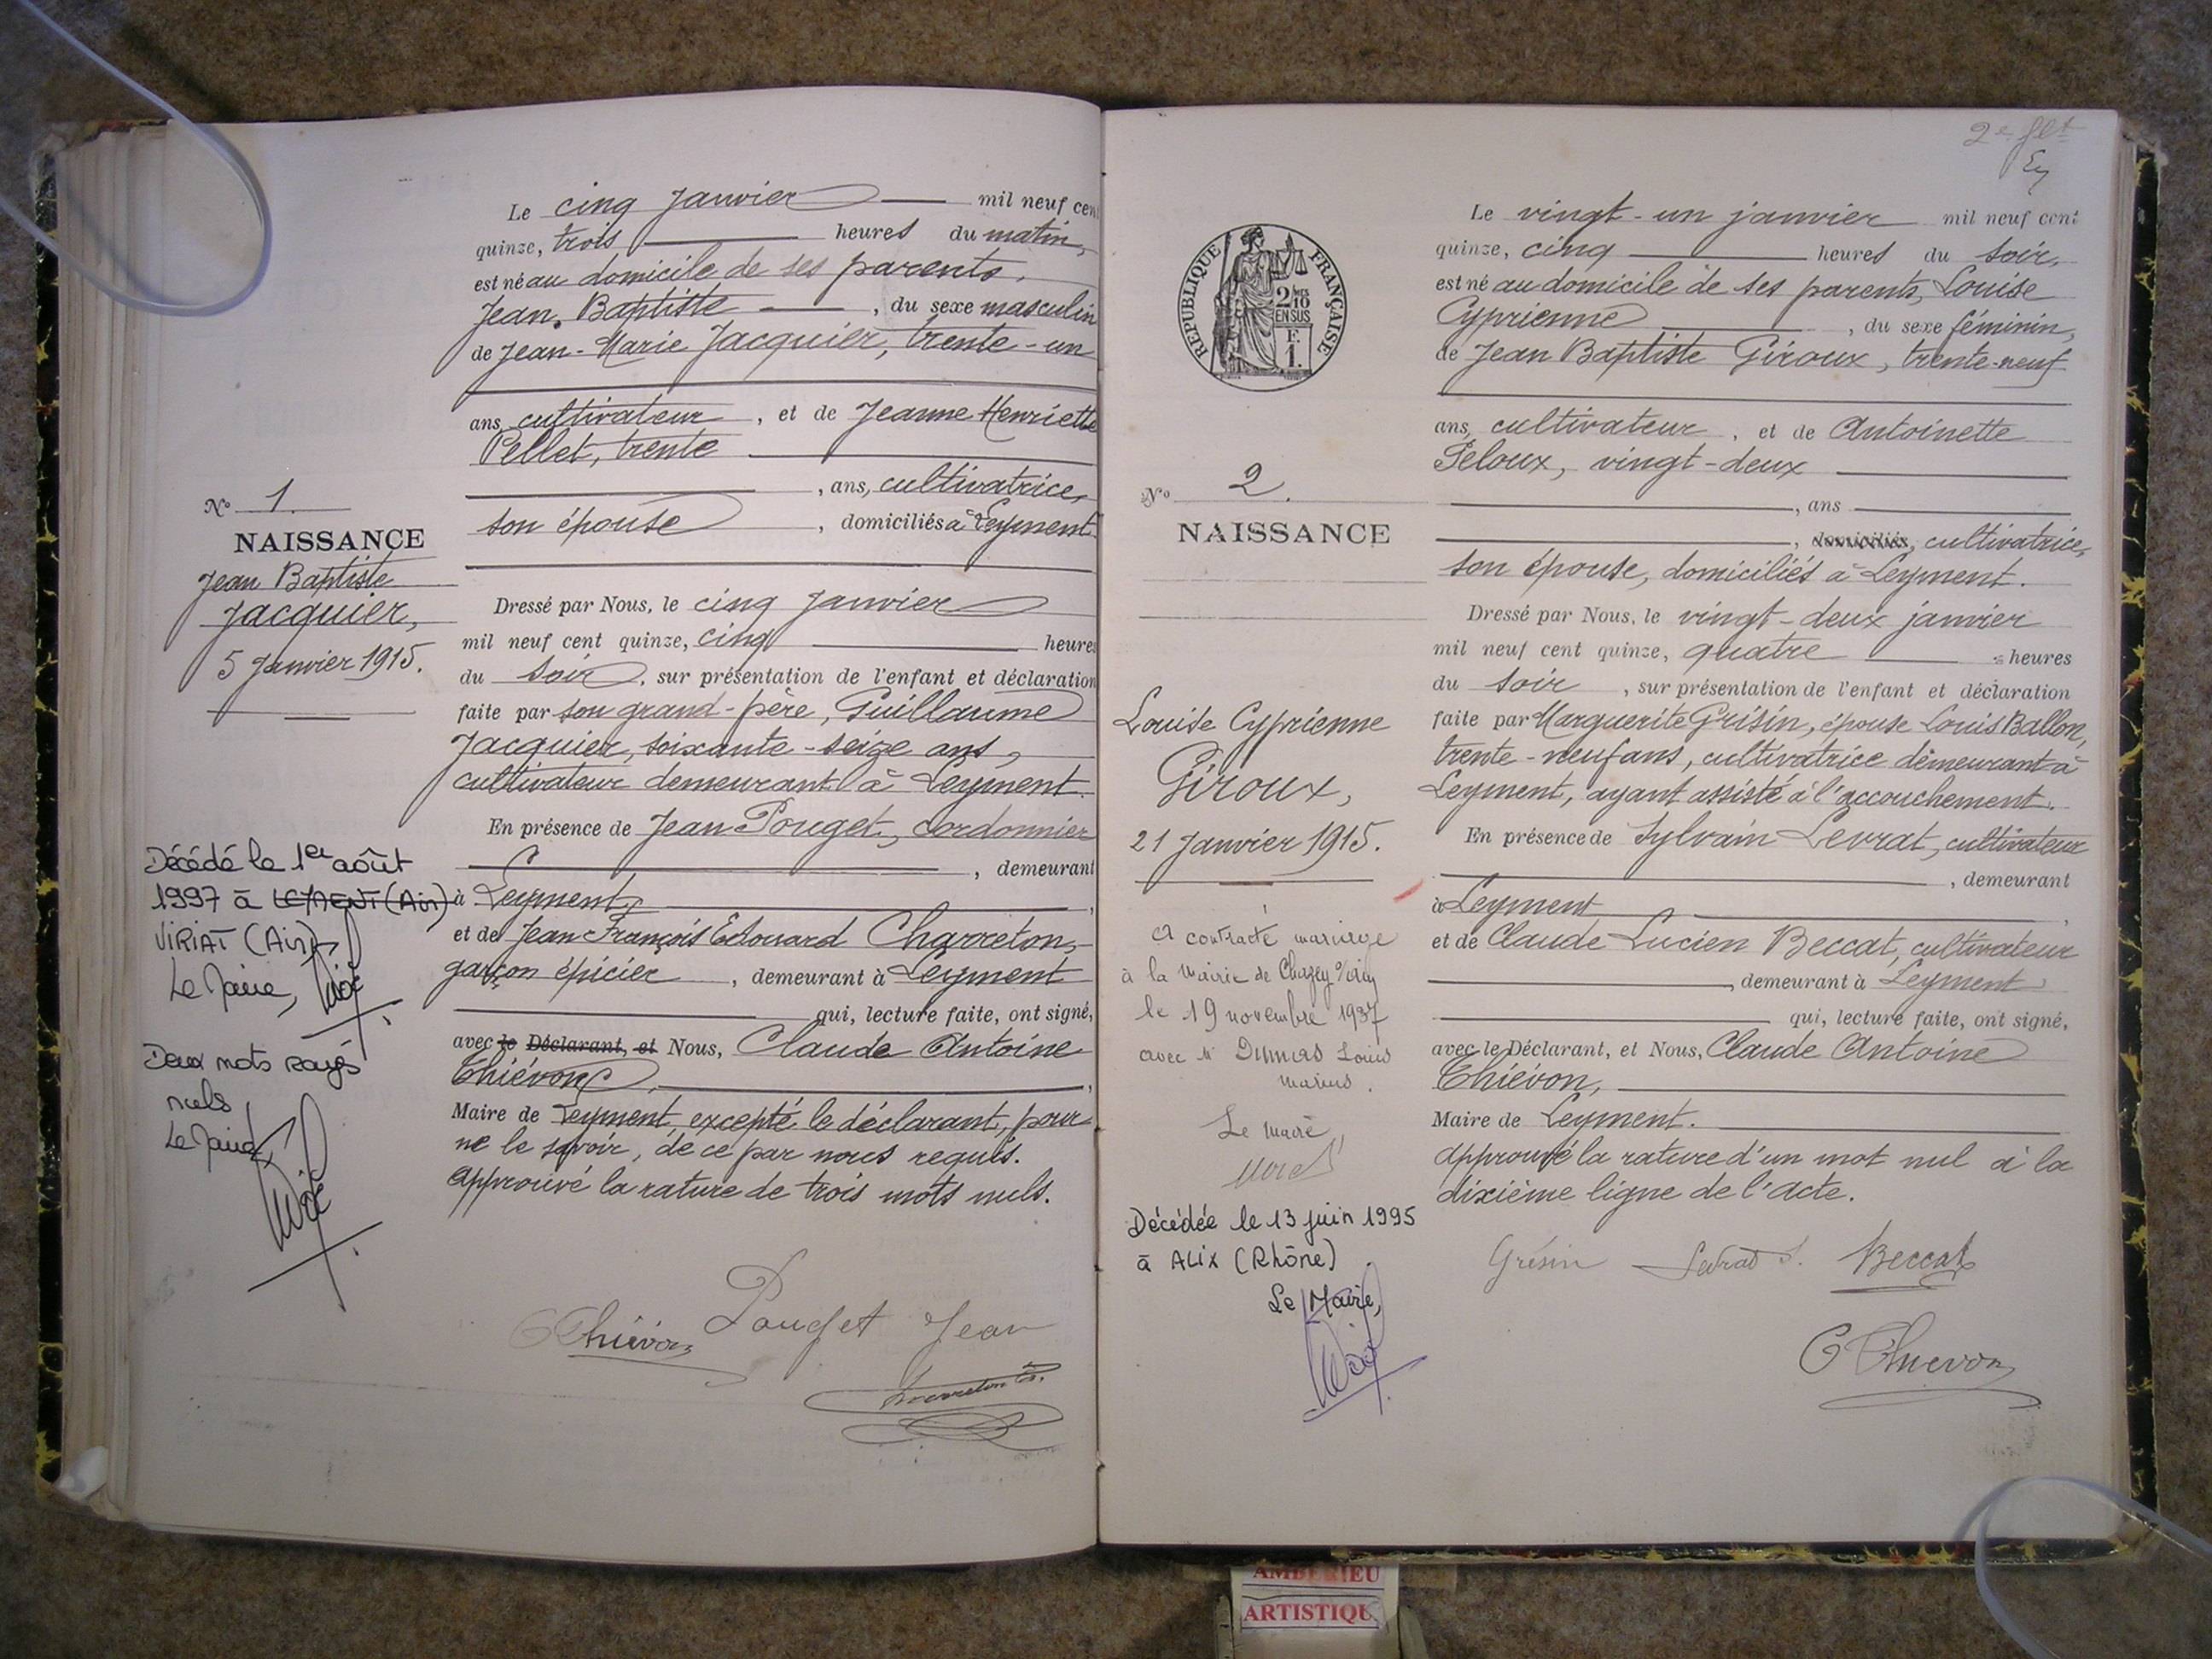 Le cinq Janvier mil neuf cen
quinze, trois heures du matin,
est né au domicile de ses parents,
Jean, Baptiste, du sexe masculin
de Jean-Marie Jacquier, trente-un
ans, cultivateur, et de Jeanne Henriette
Pellet, trente
, ans, cultivatrice,
son épouse, domiciliés à Leyment.
Dressé par Nous, le cinq Janvier
mil neuf cent quinze, cinq heures
du soir, sur présentation de l'enfant et déclaration
faite par son grand-père, Guillaume
Jacquier, soixante-seize ans,
cultivateur demeurant à Leyment.
En présence de Jean Pouget, cordonnier
, demeurant
à Leyment,
et de Jean François Edouard Charreton,
garçon épicier, demeurant à Leyment
qui, lecture faite, ont signé,
avec le Déclarant, et Nous, Claude Antoine
Thiévon,
Maire de Leyment, excepté le déclarant, pour
ne le savoir, de ce par nous requis.
Approuvé la rature de trois mots nuls.
CThiévon
Pouget Jean
Nº 1.
NAISSANCE
Jean Baptiste
Jacquier,
5 Janvier 1915.
Décédé le 1er août
1997 à LEYMENT (Ain)
VIRIAT (Ain)
Le Maire,
Deux mots rayés
nuls
Le Maire
2e flt
RÉPUBLIQUE FRANÇAISE
2/10 EN SUS
F. 1.
Nº 2.
NAISSANCE
Louise Cyprienne
Giroux,
21 Janvier 1915.
A contracté mariage
à la Mairie de Chazey s/Ain
le 19 novembre 1937
avec Mr Dumas Louis
Marius.
Le Maire,
Décédée le 13 juin 1995
à ALIX (Rhône)
Le Maire,
Le vingt-un janvier mil neuf cent
quinze, cinq heures du soir,
est né au domicile de ses parents, Louise
Cyprienne, du sexe féminin,
de Jean Baptiste Giroux, trente-neuf
ans, cultivateur, et de Antoinette
Peloux, vingt-deux
, ans
, domiciliés, cultivatrice,
son épouse, domiciliés à Leyment.
Dressé par Nous, le vingt-deux janvier
mil neuf cent quinze, quatre heures
du soir, sur présentation de l'enfant et déclaration
faite par Marguerite Grisin, épouse Louis Ballon,
trente-neuf ans, cultivatrice demeurant à
Leyment, ayant assisté à l'accouchement.
En présence de Sylvain Levrat, cultivateur
, demeurant
à Leyment,
et de Claude Lucien Beccat, cultivateur
, demeurant à Leyment
qui, lecture faite, ont signé,
avec le Déclarant, et Nous, Claude Antoine
Thiévon,
Maire de Leyment.
Approuvé la rature d'un mot nul à la
dixième ligne de l'acte.
Grésin Levrat S. Beccat
C Thievon
AMBERIEU
ARTISTIQU